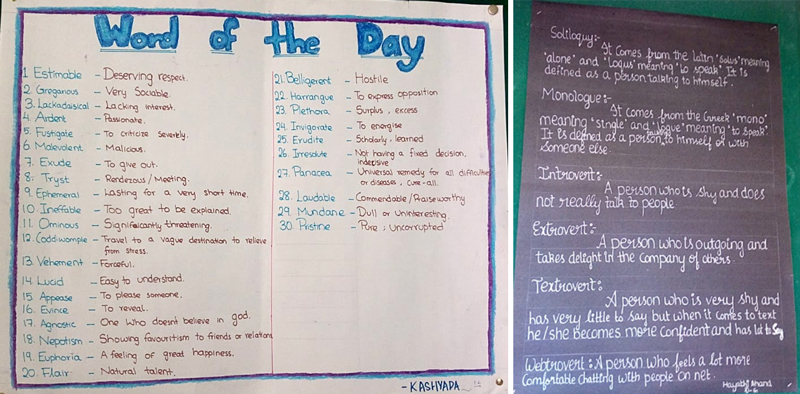 Word of the Day
1 Estimable - Deserving respect.
2. Gregarious - Very Sociable.
3. Lackadaisical - Lacking interest.
4. Ardent - Passionate.
5. Fustigate - To criticize severely.
6 Malevolent - Malicious.
7. Exude - To give out.
8. Tryst - Rendezous / Meeting.
9. Ephemeral - Lasting for a very short time.
10. Ineffable - Too great to be explained.
11. Ominous - Significantly threatening.
12. Coddiwomple - Travel to a vague destination to relieve
from stress.
13 Vehement - Forceful.
14 Lucid - Easy to understand.
15. Appease - To please someone.
16. Evince - To reveal.
17. Agnostic - One who doesnt believe in god.
18. Nepotism - Showing favouritism to friends or relations
19. Euphoria - A feeling of great happiness.
20. Flair - Natural talent.
21. Belligerent - Hostile
22. Harrangue - To express opposition
23. Plethora - Surplus, excess
24. Invigorate - To energise
25. Erudite - Scholarly, learned
26. Irresolute - Not having a fixed decision,
indecisive
27. Panacea - Universal remedy for all difficulties
or diseases, cure-all.
28. Laudable - Commendable / Raiseworthy
29. Mundane - Dull or Uninteresting.
30. Pristine - Pure ; Uncorrupted
- KASHYADA
Soliloquy:-
It comes from the Latin "Solus" meaning
"alone" and "Loqus" meaning "to speak" It is
defined as a person talking to himself.
Monologue:-
It comes from the Greek "mono"
meaning "single" and "logue" meaning "to speak"
It is defined as a person talking to himself or with
someone else.
Introvert:-
A person who is shy and does
not really talk to people
Extrovert:-
A person who is outgoing and
takes delight in the company of others.
Textrovert:-
A person who is very shy and
has very little to say but when it comes to text
he/she becomes more confident and has lot to say
Webtrovert:- A person who feels a lot more
Comfortable chatting with people on net.
Anand